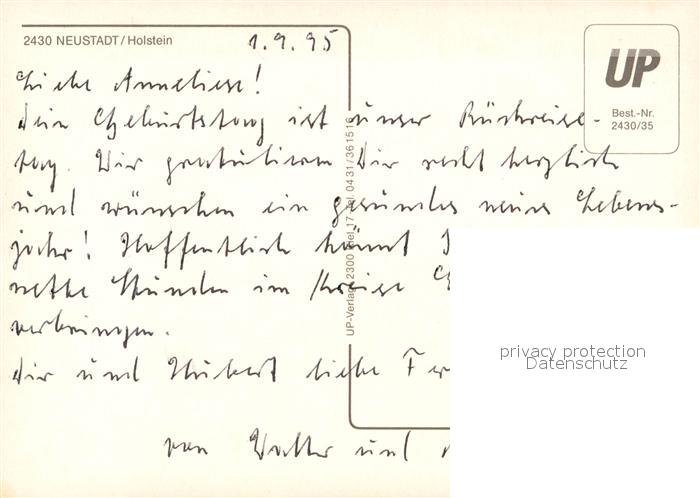 2430 NEUSTADT/Holstein
1.9.95
Liebe Anneliese!
Dein Geburtstag ist unser Rückreise-
tag. Wir gratulieren Dir recht herzlich
und wünschen ein gesundes neues Lebens-
jahr! Hoffentlich könnt
nette Stunden im Kreise
verbringen.
Dir und Hubert liebe
von Walter und
UP
Best.-Nr.
2430/35
UP-Verlag 2300 Kiel 17 Tel. 0431/361516
privacy protection
Datenschutz